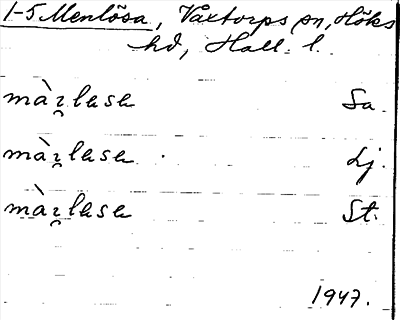 1-5 Menlösa, Våxtorps sn, Höks
hd, Hall. l.
màɀ̨lesa Sa.
màɀ̨lesa Lj.
màɀ̨lesa St.
1947.